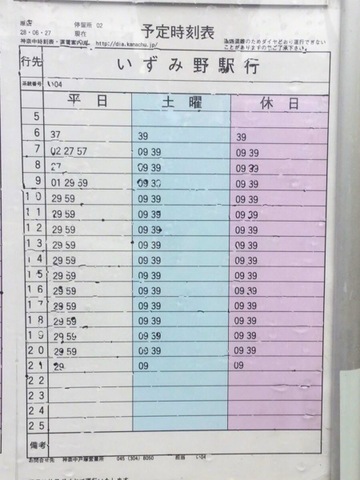 停留所 02
28-06-27
神奈中時刻表・運賃案内 http://dia.kanachu.jp/
予定時刻表
道路混雑のためダイヤどおり運行できない
ことがありますのでご了承下さい。
行先 いずみ野駅行
系統番号 い04
平日 土曜 休日
5
6 37 39 39
7 02 27 57 09 39 09 39
8 27 09 39 09 39
9 01 29 59 09 39 09 39
10 29 59 09 39 09 39
11 29 59 09 39 09 39
12 29 59 09 39 09 39
13 29 59 09 39 09 39
14 29 59 09 39 09 39
15 29 59 09 39 09 39
16 29 59 09 39 09 39
17 29 59 09 39 09 39
18 29 59 09 39 09 39
19 29 59 09 39 09 39
20 29 59 09 39 09 39
21 29 09 09
22
23
24
25
備考
お問合せ先 神奈中戸塚営業所 045 (304) 8050 い04